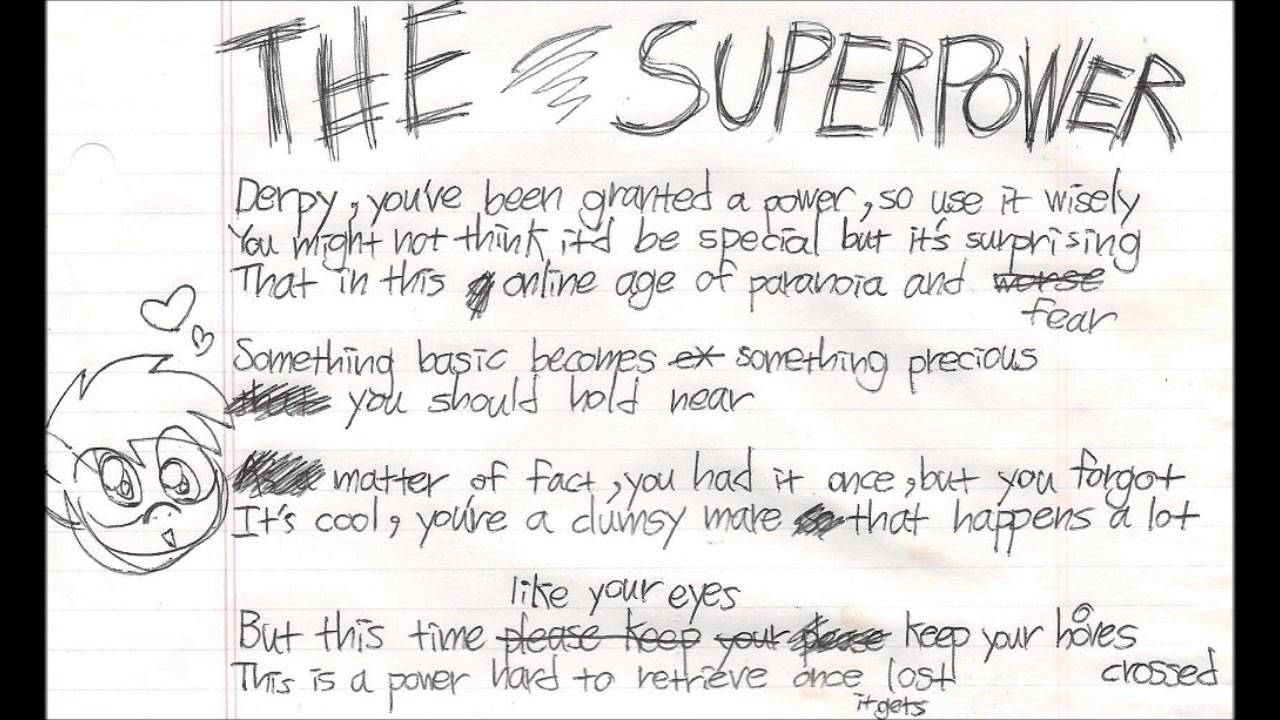 THE SUPERPOWER
Derpy, you've been granted a power, so use it wisely
You might not think it'd be special but it's surprising
That in this online age of paranoia and worse
fear
Something basic becomes ex something precious
you should hold near
matter of fact, you had it once, but you forgot
It's cool, you're a clumsy mare so that happens a lot
like your eyes
But this time please keep your please keep your hooves
crossed
This is a power hard to retrieve once lost
it gets